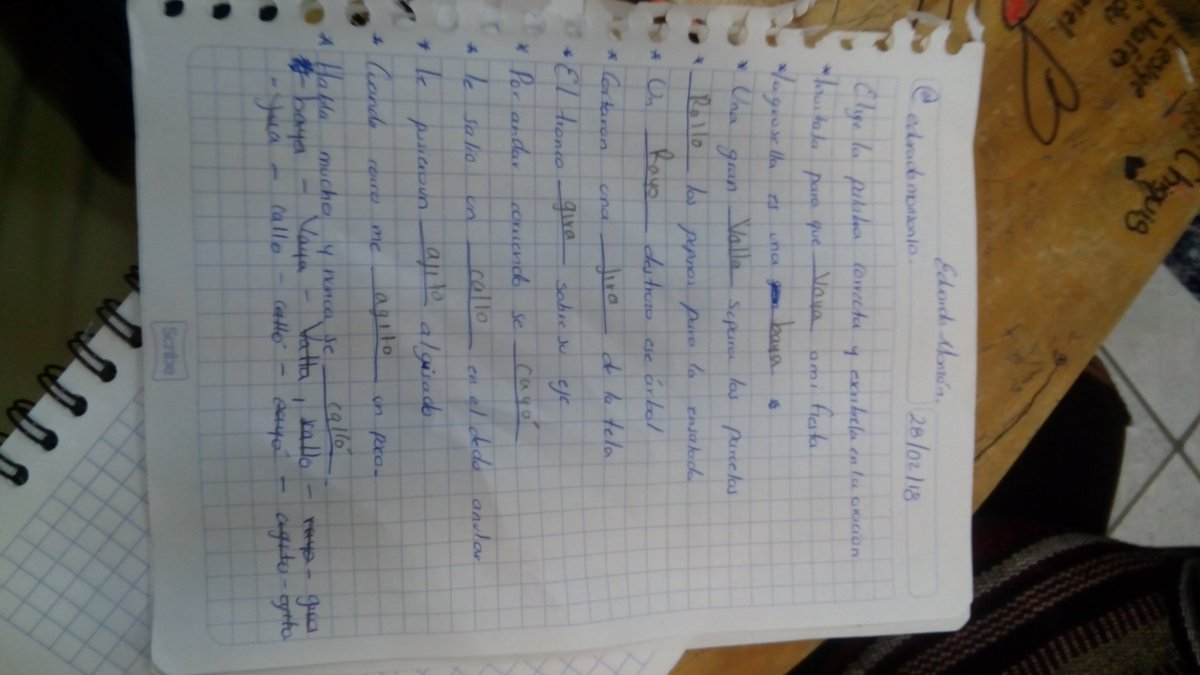 Eduardo Monzón.
28/02/18
@eduardomonzonlo.
Elige la palabra correcta y escribela en la oracion
* Invitala para que Vaya a mi fiesta
* La grosella es una baya
* Una gran Valla separa las parcelas
* Rallo los pepinos para la ensalada
* Un Rayo destrozo ese árbol
* Cortaron una jira de la tela
* El tronco gira sobre su eje
* Por andar corriendo se cayó
* le salio un callo en el dedo anular
* le pusieron ajito al guisado
* Cuando corro me agito un poco.
* Habla mucho y nunca se calló.
- baya - Vaya - Valla, rallo - rayo - gira
- jira - callo - calló - cayó - agito - ajito
Scribe
Lesly
Chquis